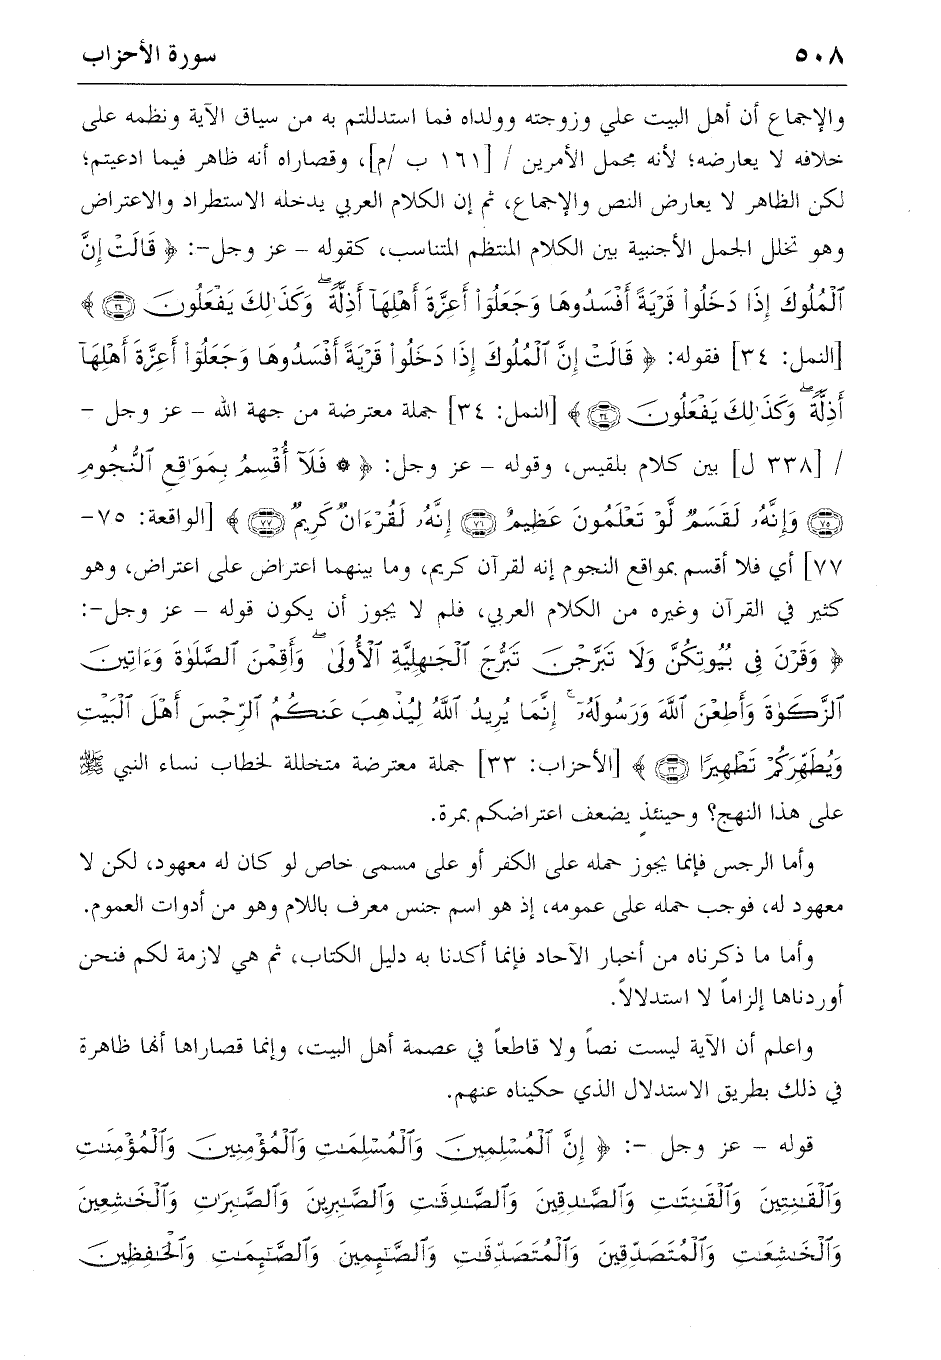 ٥٠٨ سورة الأحزاب
والإجماع أن أهل البيت علي وزوجته وولداه فما استدللتم به من سياق الآية ونظمه على
خلافه لا يعارضه؛ لأنه محمل الأمرين / [١٦١ ب /م]، وقصاراه أنه ظاهر فيما ادعيتم؛
لكن الظاهر لا يعارض النص والإجماع، ثم إن الكلام العربي يدخله الاستطراد والاعتراض
وهو تخلل الجمل الأجنبية بين الكلام المنتظم المتناسب، كقوله - عز وجل-: ﴿ قَالَتْ إِنَّ
ٱلْمُلُوكَ إِذَا دَخَلُوا۟ قَرْيَةً أَفْسَدُوهَا وَجَعَلُوٓا۟ أَعِزَّةَ أَهْلِهَآ أَذِلَّةً ۖ وَكَذَٰلِكَ يَفْعَلُونَ ٣٤ ﴾
[النمل: ٣٤] فقوله: ﴿ قَالَتْ إِنَّ ٱلْمُلُوكَ إِذَا دَخَلُوا۟ قَرْيَةً أَفْسَدُوهَا وَجَعَلُوٓا۟ أَعِزَّةَ أَهْلِهَآ
أَذِلَّةً ۖ وَكَذَٰلِكَ يَفْعَلُونَ ٣٤ ﴾ [النمل: ٣٤] جملة معترضة من جهة الله - عز وجل -
/ [٣٣٨ ل] بين كلام بلقيس، وقوله - عز وجل: ﴿ ۞ فَلَآ أُقْسِمُ بِمَوَٰقِعِ ٱلنُّجُومِ
٧٥ وَإِنَّهُۥ لَقَسَمٌ لَّوْ تَعْلَمُونَ عَظِيمٌ ٧٦ إِنَّهُۥ لَقُرْءَانٌ كَرِيمٌ ٧٧ ﴾ [الواقعة: ٧٥-
٧٧] أي فلا أقسم بمواقع النجوم إنه لقرآن كريم، وما بينهما اعتراض على اعتراض، وهو
كثير في القرآن وغيره من الكلام العربي، فلم لا يجوز أن يكون قوله - عز وجل-:
﴿ وَقَرْنَ فِى بُيُوتِكُنَّ وَلَا تَبَرَّجْنَ تَبَرُّجَ ٱلْجَٰهِلِيَّةِ ٱلْأُولَىٰ ۖ وَأَقِمْنَ ٱلصَّلَوٰةَ وَءَاتِينَ
ٱلزَّكَوٰةَ وَأَطِعْنَ ٱللَّهَ وَرَسُولَهُۥٓ ۚ إِنَّمَا يُرِيدُ ٱللَّهُ لِيُذْهِبَ عَنكُمُ ٱلرِّجْسَ أَهْلَ ٱلْبَيْتِ
وَيُطَهِّرَكُمْ تَطْهِيرًا ٣٣ ﴾ [الأحزاب: ٣٣] جملة معترضة متخللة لخطاب نساء النبي ﷺ
على هذا النهج؟ وحينئذٍ يضعف اعتراضكم بمرة.
وأما الرجس فإنما يجوز حمله على الكفر أو على مسمى خاص لو كان له معهود، لكن لا
معهود له، فوجب حمله على عمومه، إذ هو اسم جنس معرف باللام وهو من أدوات العموم.
وأما ما ذكرناه من أخبار الآحاد فإنما أكدنا به دليل الكتاب، ثم هي لازمة لكم فنحن
أوردناها إلزاماً لا استدلالاً.
واعلم أن الآية ليست نصاً ولا قاطعاً في عصمة أهل البيت، وإنما قصاراها أنها ظاهرة
في ذلك بطريق الاستدلال الذي حكيناه عنهم.
قوله - عز وجل -: ﴿ إِنَّ ٱلْمُسْلِمِينَ وَٱلْمُسْلِمَٰتِ وَٱلْمُؤْمِنِينَ وَٱلْمُؤْمِنَٰتِ
وَٱلْقَٰنِتِينَ وَٱلْقَٰنِتَٰتِ وَٱلصَّٰدِقِينَ وَٱلصَّٰدِقَٰتِ وَٱلصَّٰبِرِينَ وَٱلصَّٰبِرَٰتِ وَٱلْخَٰشِعِينَ
وَٱلْخَٰشِعَٰتِ وَٱلْمُتَصَدِّقِينَ وَٱلْمُتَصَدِّقَٰتِ وَٱلصَّٰٓئِمِينَ وَٱلصَّٰٓئِمَٰتِ وَٱلْحَٰفِظِينَ